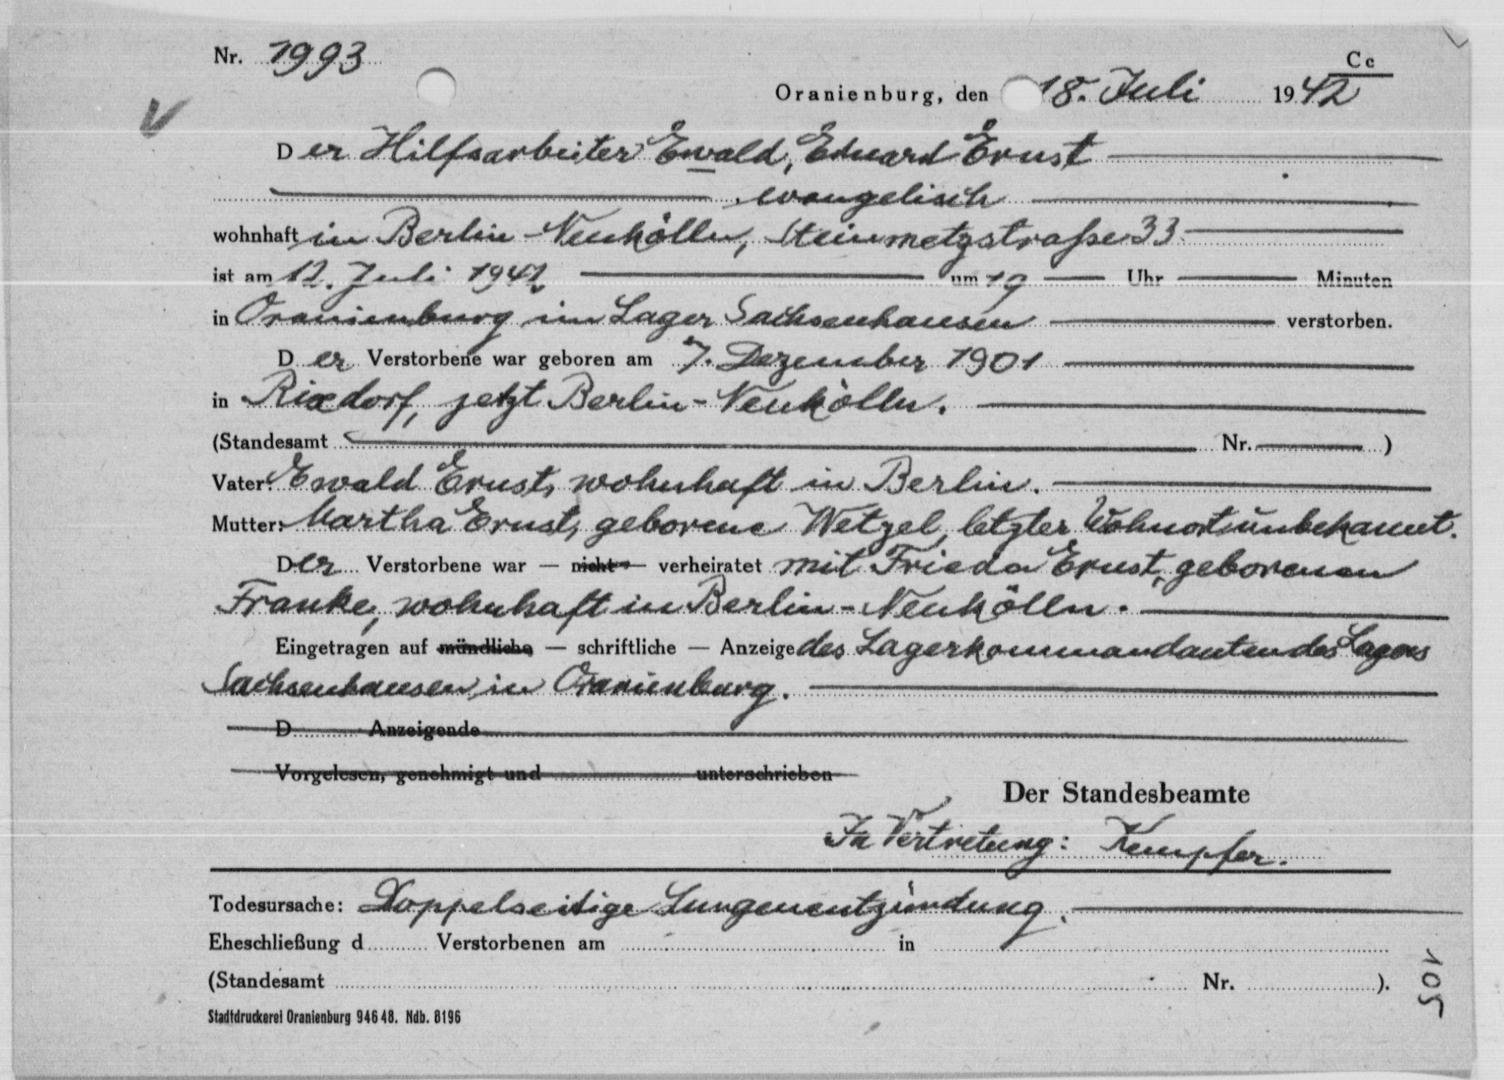 Nr. 1993
Cc
Oranienburg, den 18. Juli 1942
Der Hilfsarbeiter Ewald, Eduard Ernst
evangelisch
wohnhaft in Berlin-Neukölln, Steinmetzstraße 33
ist am 12. Juli 1942 um 19 Uhr Minuten
in Oranienburg im Lager Sachsenhausen verstorben.
Der Verstorbene war geboren am 7. Dezember 1901
in Rixdorf, jetzt Berlin-Neukölln.
(Standesamt Nr. )
Vater: Ewald Ernst, wohnhaft in Berlin.
Mutter: Martha Ernst, geborene Wetzel, letzter Wohnort unbekannt.
Der Verstorbene war — nicht — verheiratet mit Frieda Ernst, geborenen
Franke, wohnhaft in Berlin-Neukölln.
Eingetragen auf mündliche — schriftliche — Anzeige des Lagerkommandanten des Lagers
Sachsenhausen in Oranienburg.
D Anzeigende
Vorgelesen, genehmigt und unterschrieben
Der Standesbeamte
In Vertretung: Kempfer.
Todesursache: Doppelseitige Lungenentzündung.
Eheschließung d Verstorbenen am in
(Standesamt Nr. ).
105
Stadtdruckerei Oranienburg 946 48. Ndb. 8196